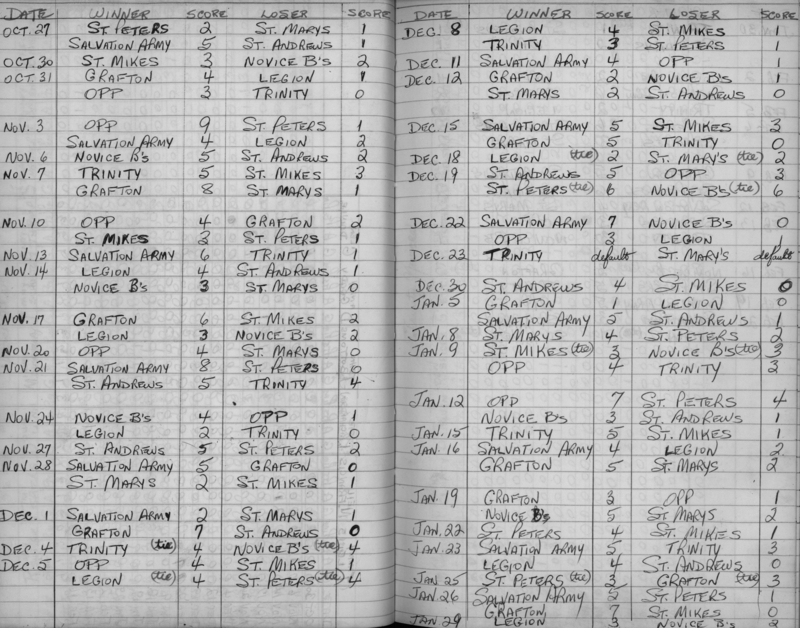 DATE WINNER SCORE LOSER SCORE
OCT. 27 ST. PETERS 2 ST. MARYS 1
SALVATION ARMY 5 ST. ANDREWS 1
OCT. 30 ST. MIKES 3 NOVICE B's 2
OCT. 31 GRAFTON 4 LEGION 1
OPP 3 TRINITY 0
NOV. 3 OPP 9 ST. PETERS 1
SALVATION ARMY 4 LEGION 2
NOV. 6 NOVICE B's 5 ST. ANDREWS 2
NOV. 7 TRINITY 5 ST. MIKES 3
GRAFTON 8 ST. MARYS 1
NOV. 10 OPP 4 GRAFTON 2
ST. MIKES 3 ST. PETERS 1
NOV. 13 SALVATION ARMY 6 TRINITY 1
NOV. 14 LEGION 4 ST. ANDREWS 1
NOVICE B's 3 ST. MARYS 0
NOV. 17 GRAFTON 6 ST. MIKES 2
LEGION 3 NOVICE B's 2
NOV. 20 OPP 4 ST. MARYS 0
NOV. 21 SALVATION ARMY 8 ST. PETERS 0
ST. ANDREWS 5 TRINITY 4
NOV. 24 NOVICE B's 4 OPP 1
LEGION 2 TRINITY 0
NOV. 27 ST. ANDREWS 5 ST. PETERS 2
NOV. 28 SALVATION ARMY 5 GRAFTON 0
ST. MARYS 2 ST. MIKES 1
DEC. 1 SALVATION ARMY 2 ST. MARYS 1
GRAFTON 7 ST. ANDREWS 0
DEC. 4 TRINITY (tie) 4 NOVICE B's (tie) 4
DEC. 5 OPP 4 ST. MIKES 1
LEGION (tie) 4 ST. PETERS (tie) 4
DATE WINNER SCORE LOSER SCORE
DEC. 8 LEGION 4 ST. MIKES 1
TRINITY 3 ST. PETERS 1
DEC. 11 SALVATION ARMY 4 OPP 1
DEC. 12 GRAFTON 2 NOVICE B's 1
ST. MARYS 2 ST. ANDREWS 0
DEC. 15 SALVATION ARMY 5 ST. MIKES 3
GRAFTON 5 TRINITY 0
DEC. 18 LEGION (tie) 2 ST. MARY'S (tie) 2
DEC. 19 ST. ANDREWS 5 OPP 3
ST. PETERS (tie) 6 NOVICE B's (tie) 6
DEC. 22 SALVATION ARMY 7 NOVICE B's 0
OPP 3 LEGION 1
DEC. 23 TRINITY default ST. MARY'S default
DEC. 30 ST. ANDREWS 4 ST. MIKES 0
JAN. 5 GRAFTON 1 LEGION 0
SALVATION ARMY 5 ST. ANDREWS 1
JAN. 8 ST. MARYS 4 ST. PETERS 2
JAN. 9 ST. MIKES (tie) 3 NOVICE B's (tie) 3
OPP 4 TRINITY 3
JAN. 12 OPP 7 ST. PETERS 4
NOVICE B's 3 ST. ANDREWS 1
JAN. 15 TRINITY 5 ST. MIKES 1
JAN. 16 SALVATION ARMY 4 LEGION 2
GRAFTON 5 ST. MARYS 2
JAN. 19 GRAFTON 3 OPP 1
NOVICE B's 5 ST. MARYS 2
JAN. 22 ST. PETERS 4 ST. MIKES 1
JAN. 23 SALVATION ARMY 5 TRINITY 3
LEGION 4 ST. ANDREWS 0
JAN. 25 ST. PETERS (tie) 3 GRAFTON (tie) 3
JAN. 26 SALVATION ARMY 5 ST. PETERS 1
GRAFTON 7 ST. MIKES 0
JAN 29 LEGION 3 NOVICE B's 2